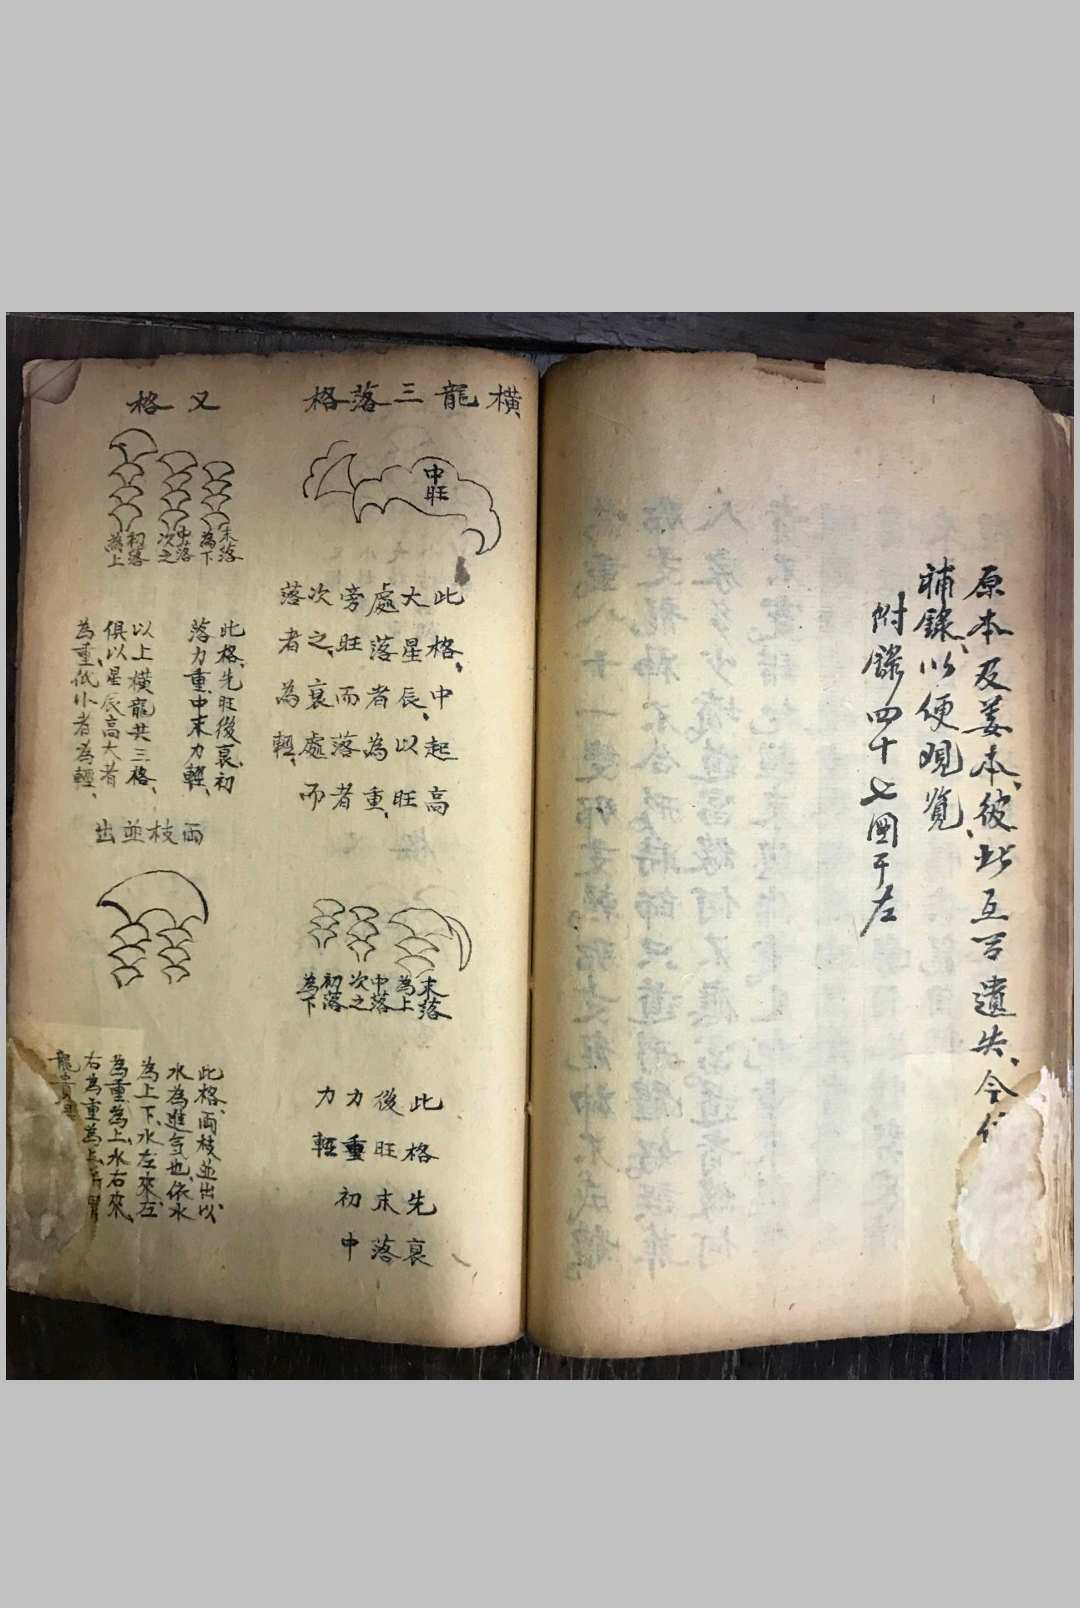 原本及姜本、彼此互有遺失、今
補錄、以便觀覽、
附錄四十七圖于左
橫龍三落格
中旺
此格、中起高
大星辰、以旺
處落者為重、
旁旺而落者
次之、衰處而
落者為輕、
末落為上
中落次之
初落為下
此格先衰
後旺末落
力重初中
力輕
又格
末落為下
中落次之
初落為上
此格、先旺後衰、初
落力重、中末力輕、
以上橫龍共三格、
俱以星辰高大者
為重、低小者為輕、
兩枝並出
此格、兩枝並出、以
水為進氣也、依水
為上下、水左來、左
為重為上、水右來、
右為重為上、
龍貴